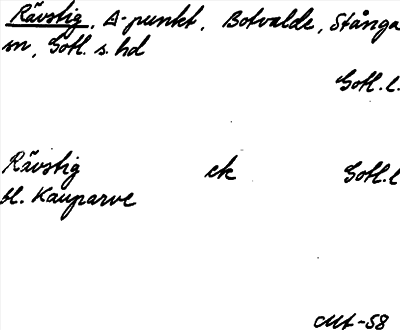 Rävstig, A-punkt, Botvalde, Stånga
sn, Gotl. s. hd
Gotl. l.
Rävstig ek Gotl. l
bl. Kauparve
Mt-58